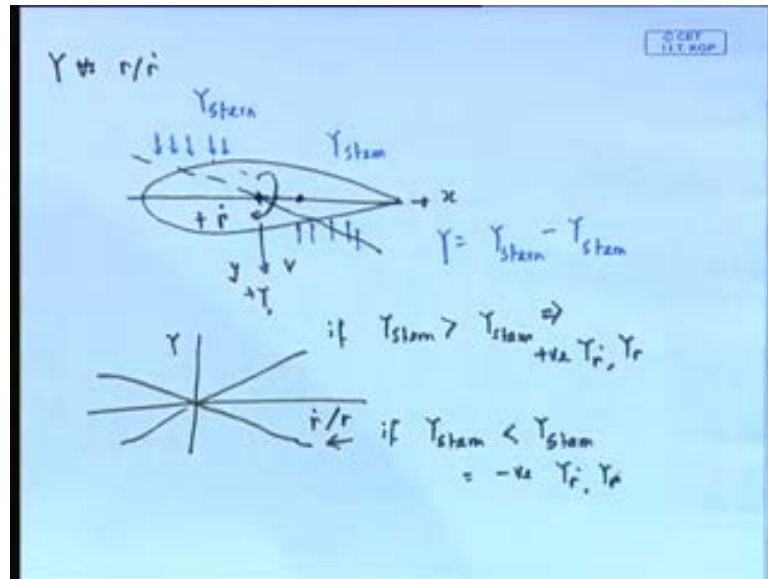 © CET
I.I.T. KGP
Y vs r/ṙ
Y stern
Y stem
+ ṙ
x
y v
+Y
Y = Y stern - Y stem
Y
ṙ/r
if Y stern > Y stem ⇒
+ve Yṙ, Yr
if Y stern < Y stem
= -ve Yṙ, Yr